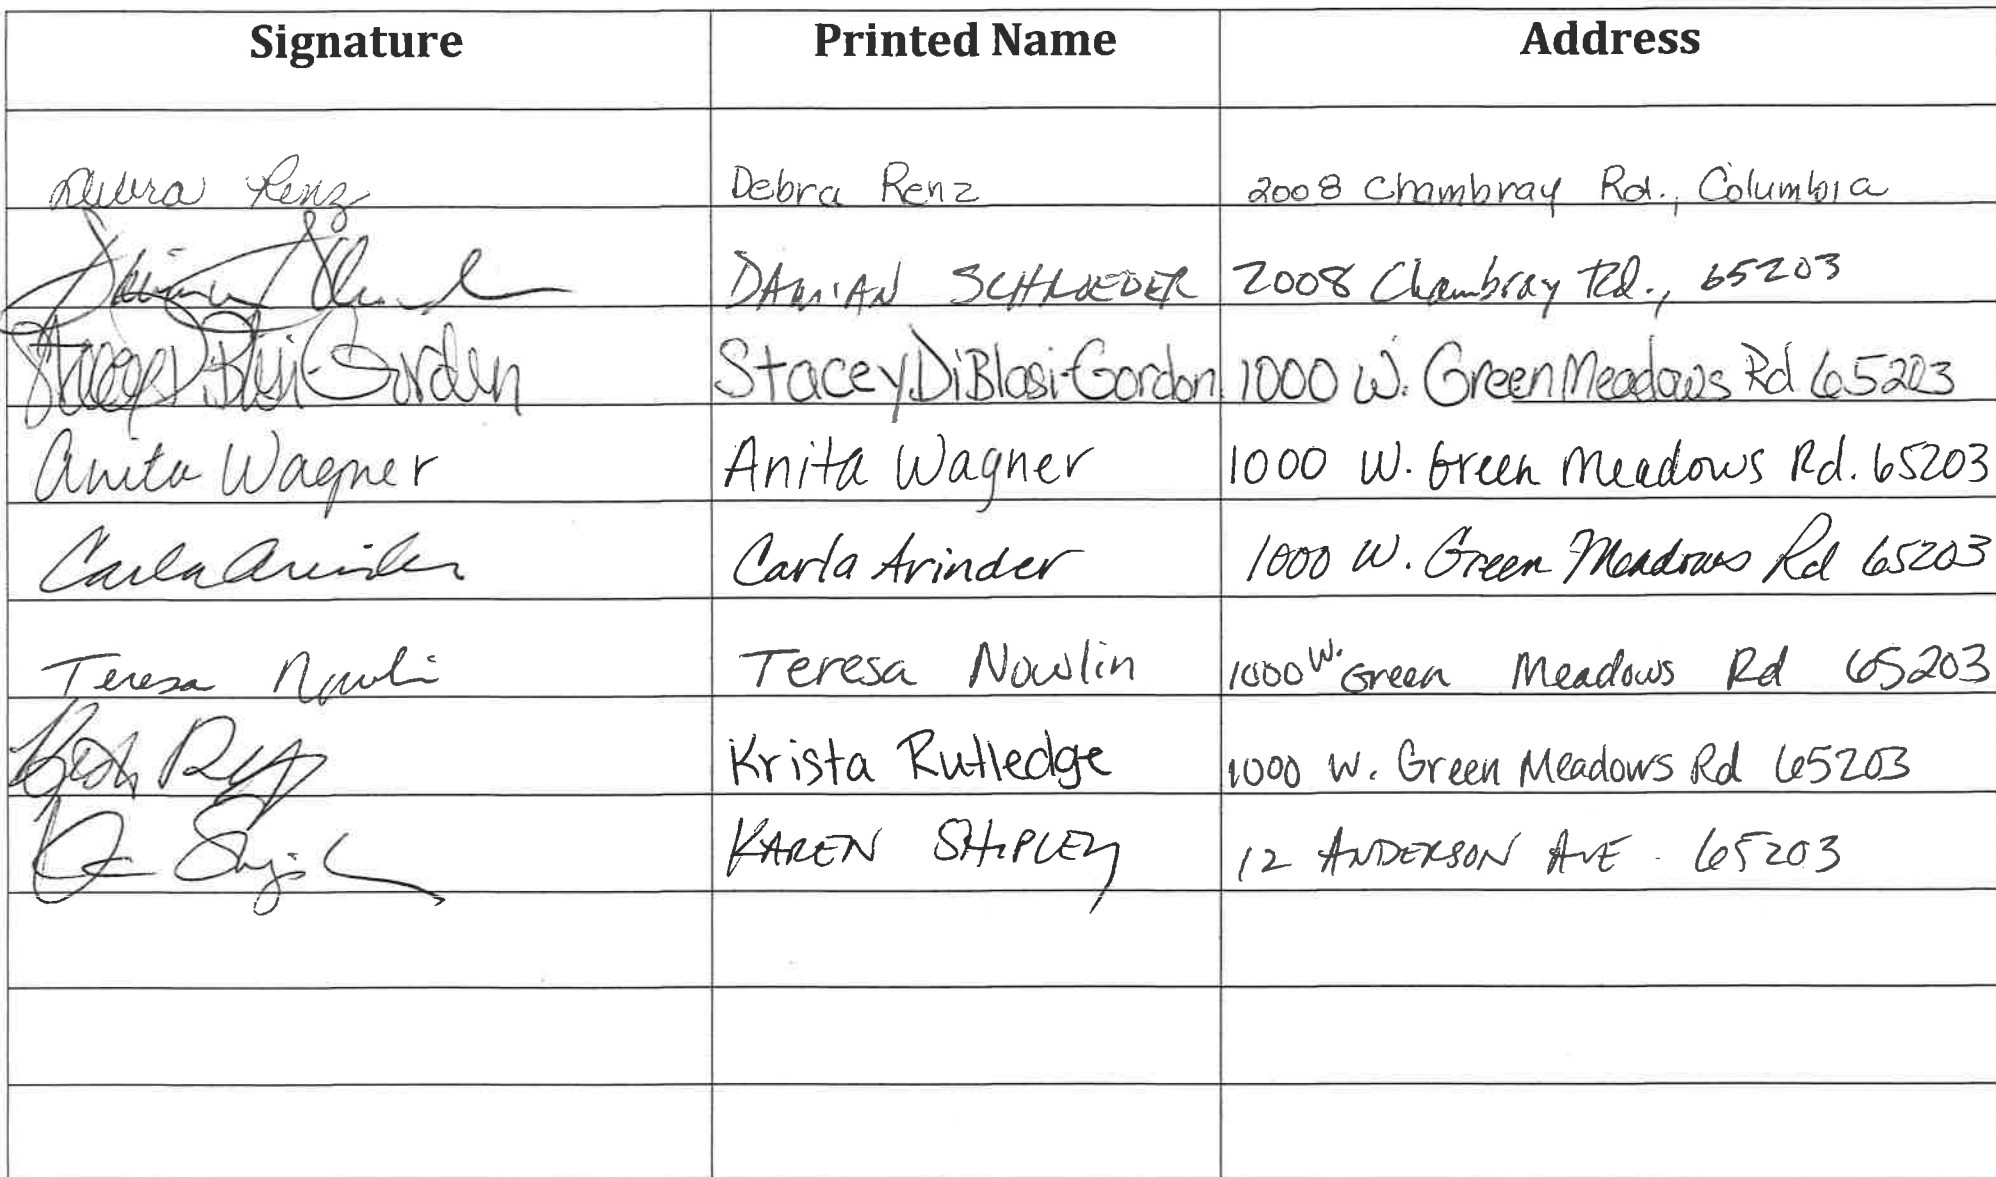 Signature Printed Name Address
Debra Renz Debra Renz 2008 Chambray Rd., Columbia
DAMIAN SCHROEDER 2008 Chambray Rd., 65203
Stacey DiBlasi-Gordon Stacey DiBlasi-Gordon 1000 W. Green Meadows Rd 65203
Anita Wagner Anita Wagner 1000 W. Green Meadows Rd. 65203
Carla Arinder Carla Arinder 1000 W. Green Meadows Rd 65203
Teresa Nowlin Teresa Nowlin 1000 W. Green Meadows Rd 65203
Krista Rutledge 1000 W. Green Meadows Rd 65203
KAREN SHIPLEY 12 ANDERSON AVE 65203